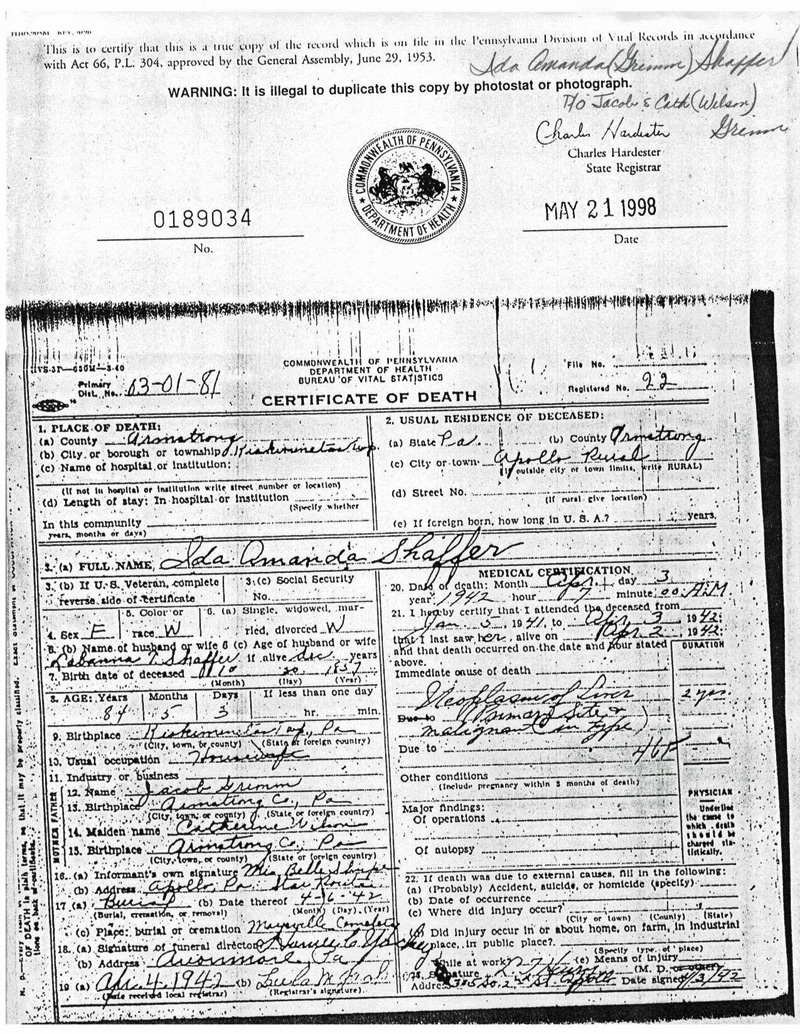 This is to certify that this is a true copy of the record which is on file in the Pennsylvania Division of Vital Records in accordance
with Act 66, P.L. 304, approved by the General Assembly, June 29, 1953.
Ida Amanda (Grimm) Shaffer
WARNING: It is illegal to duplicate this copy by photostat or photograph.
D/O Jacob & Cath (Wilson)
Grimm
Charles Hardester
Charles Hardester
State Registrar
COMMONWEALTH OF PENNSYLVANIA
DEPARTMENT OF HEALTH
0189034
No.
MAY 21 1998
Date
COMMONWEALTH OF PENNSYLVANIA
DEPARTMENT OF HEALTH
BUREAU OF VITAL STATISTICS
CERTIFICATE OF DEATH
Primary
Dist. No. 03-01-81
File No.
Registered No. 22
1. PLACE OF DEATH:
(a) County Armstrong
(b) City, or borough or township Kiskiminetas Twp.
(c) Name of hospital or institution:
(If not in hospital or institution write street number or location)
(d) Length of stay: In hospital or institution
(Specify whether
In this community
years, months or days)
2. USUAL RESIDENCE OF DECEASED:
(a) State Pa. (b) County Armstrong
(c) City or town Apollo Rural
(If outside city or town limits, write RURAL)
(d) Street No.
(If rural give location)
(e) If foreign born, how long in U. S. A.? years.
3. (a) FULL NAME Ida Amanda Shaffer
3. (b) If U. S. Veteran, complete
reverse side of certificate
3. (c) Social Security
No.
4. Sex F
5. Color or
race W
6. (a) Single, widowed, mar-
ried, divorced W
6. (b) Name of husband or wife 6 (c) Age of husband or wife
Shaffer if alive dec. years
7. Birth date of deceased 1857
(Month) (Day) (Year)
8. AGE: Years Months Days If less than one day
84 5 3 hr. min.
9. Birthplace Kiskiminetas Twp., Pa
(City, town, or county) (State or foreign country)
10. Usual occupation Housewife
11. Industry or business
FATHER
12. Name Jacob Grimm
13. Birthplace Armstrong Co., Pa
(City, town, or county) (State or foreign country)
MOTHER
14. Maiden name Catherine Wilson
15. Birthplace Armstrong Co., Pa
(City, town, or county) (State or foreign country)
16. (a) Informant's own signature Mrs. Belle
(b) Address Apollo, Pa. Star Route
17. (a) Burial (b) Date thereof 4-6-42
(Burial, cremation, or removal) (Month) (Day) (Year)
(c) Place: burial or cremation Maysville Cemetery
18. (a) Signature of funeral director
(b) Address Avonmore, Pa
19 (a) Apr. 4, 1942 (b) Leula M.
(Date received local registrar) (Registrar's signature)
MEDICAL CERTIFICATION
20. Date of death: Month Apr. day 3
year 1942 hour 7 minute 00 A.M
21. I hereby certify that I attended the deceased from
Jan 5, 1941, to Apr 3 1942;
that I last saw her alive on Apr. 2 1942;
and that death occurred on the date and hour stated
above.
DURATION
Immediate cause of death
Neoplasm of Liver 2 yrs
Due to (Primary Site &
malignant in type)
Due to
Other conditions
(Include pregnancy within 3 months of death)
Major findings:
Of operations
Of autopsy
PHYSICIAN
Underline
the cause to
which death
should be
charged sta-
tistically.
22. If death was due to external causes, fill in the following:
(a) (Probably) Accident, suicide, or homicide (specify)
(b) Date of occurrence
(c) Where did injury occur?
(City or town) (County) (State)
(d) Did injury occur in or about home, on farm, in industrial
place, in public place?
(Specify type of place)
While at work? (e) Means of injury
(M. D. or other)
Date signed 4/3/42